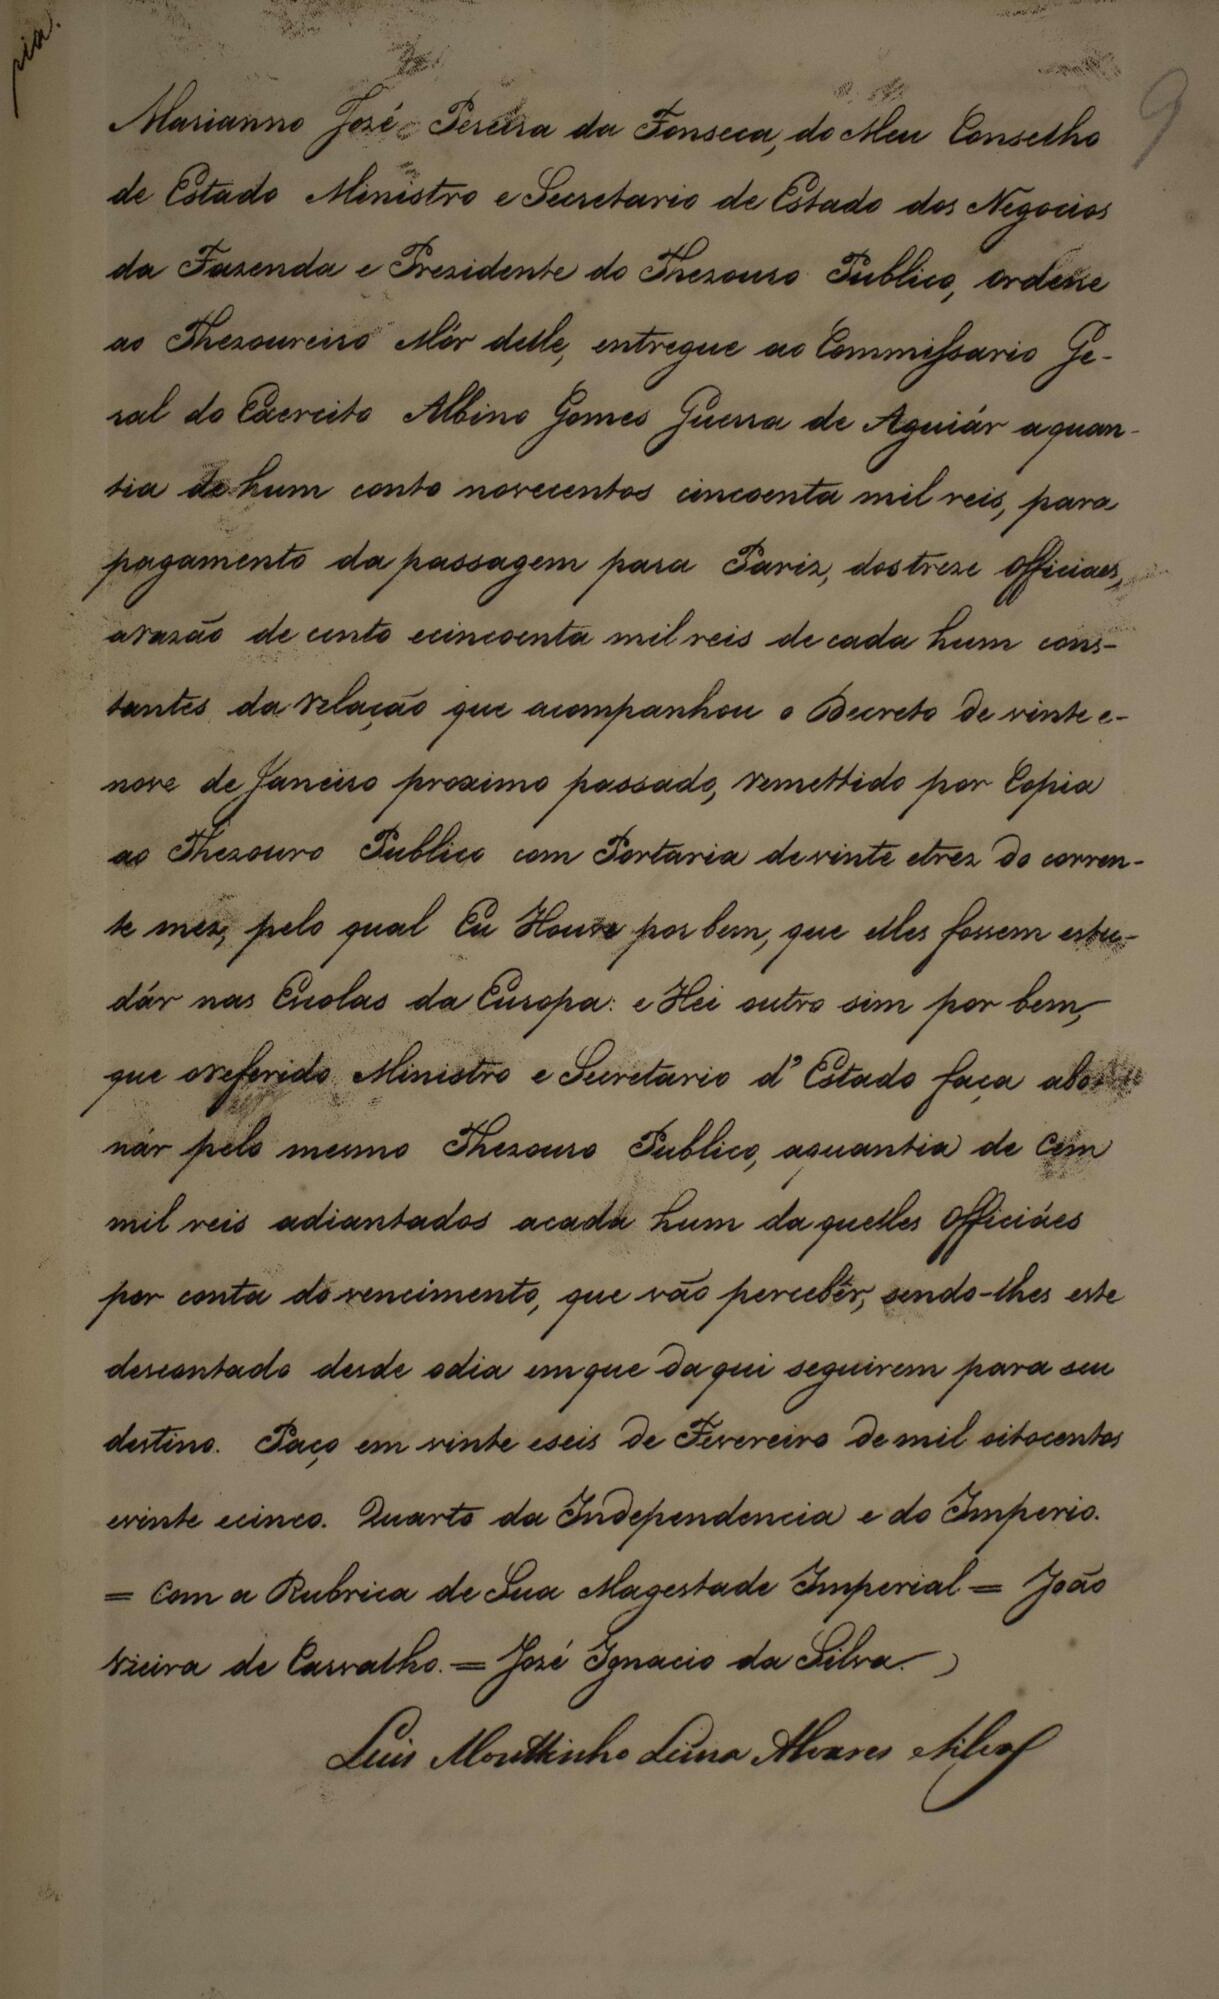 pia.
9
Marianno José Pereira da Fonseca, do Meu Conselho
de Estado Ministro e Secretario de Estado dos Negocios
da Fazenda e Prezidente do Thezouro Publico, ordene
ao Thezoureiro Mór delle, entregue ao Commissario Ge-
ral do Exercito Albino Gomes Guerra de Aguiár a quan-
tia de hum conto novecentos cincoenta mil reis, para
pagamento da passagem para Pariz, dos treze officiaes,
a razão de cento e cincoenta mil reis de cada hum cons-
tantes da relação que acompanhou o Decreto de vinte e-
nove de Janeiro proximo passado, remettido por Copia
ao Thezouro Publico com Portaria de vinte e trez do corren-
te mez, pelo qual Eu Houve por bem, que elles fossem estu-
dár nas Escolas da Europa: e Hei outro sim por bem,
que o referido Ministro e Secretario d'Estado faça abo-
nár pelo mesmo Thezouro Publico, a quantia de Cem
mil reis adiantados a cada hum daquelles officiáes
por conta do vencimento, que vão percebêr, sendo-lhes este
descontado desde o dia em que daqui seguirem para seu
destino. Paço em vinte e seis de Fevereiro de mil oitocentos
e vinte e cinco. Quarto da Independencia e do Imperio.
= Com a Rubrica de Sua Magestade Imperial = João
Vieira de Carvalho. = José Ignacio da Silva.
Luis Mouttinho Lima Alvares e Silva